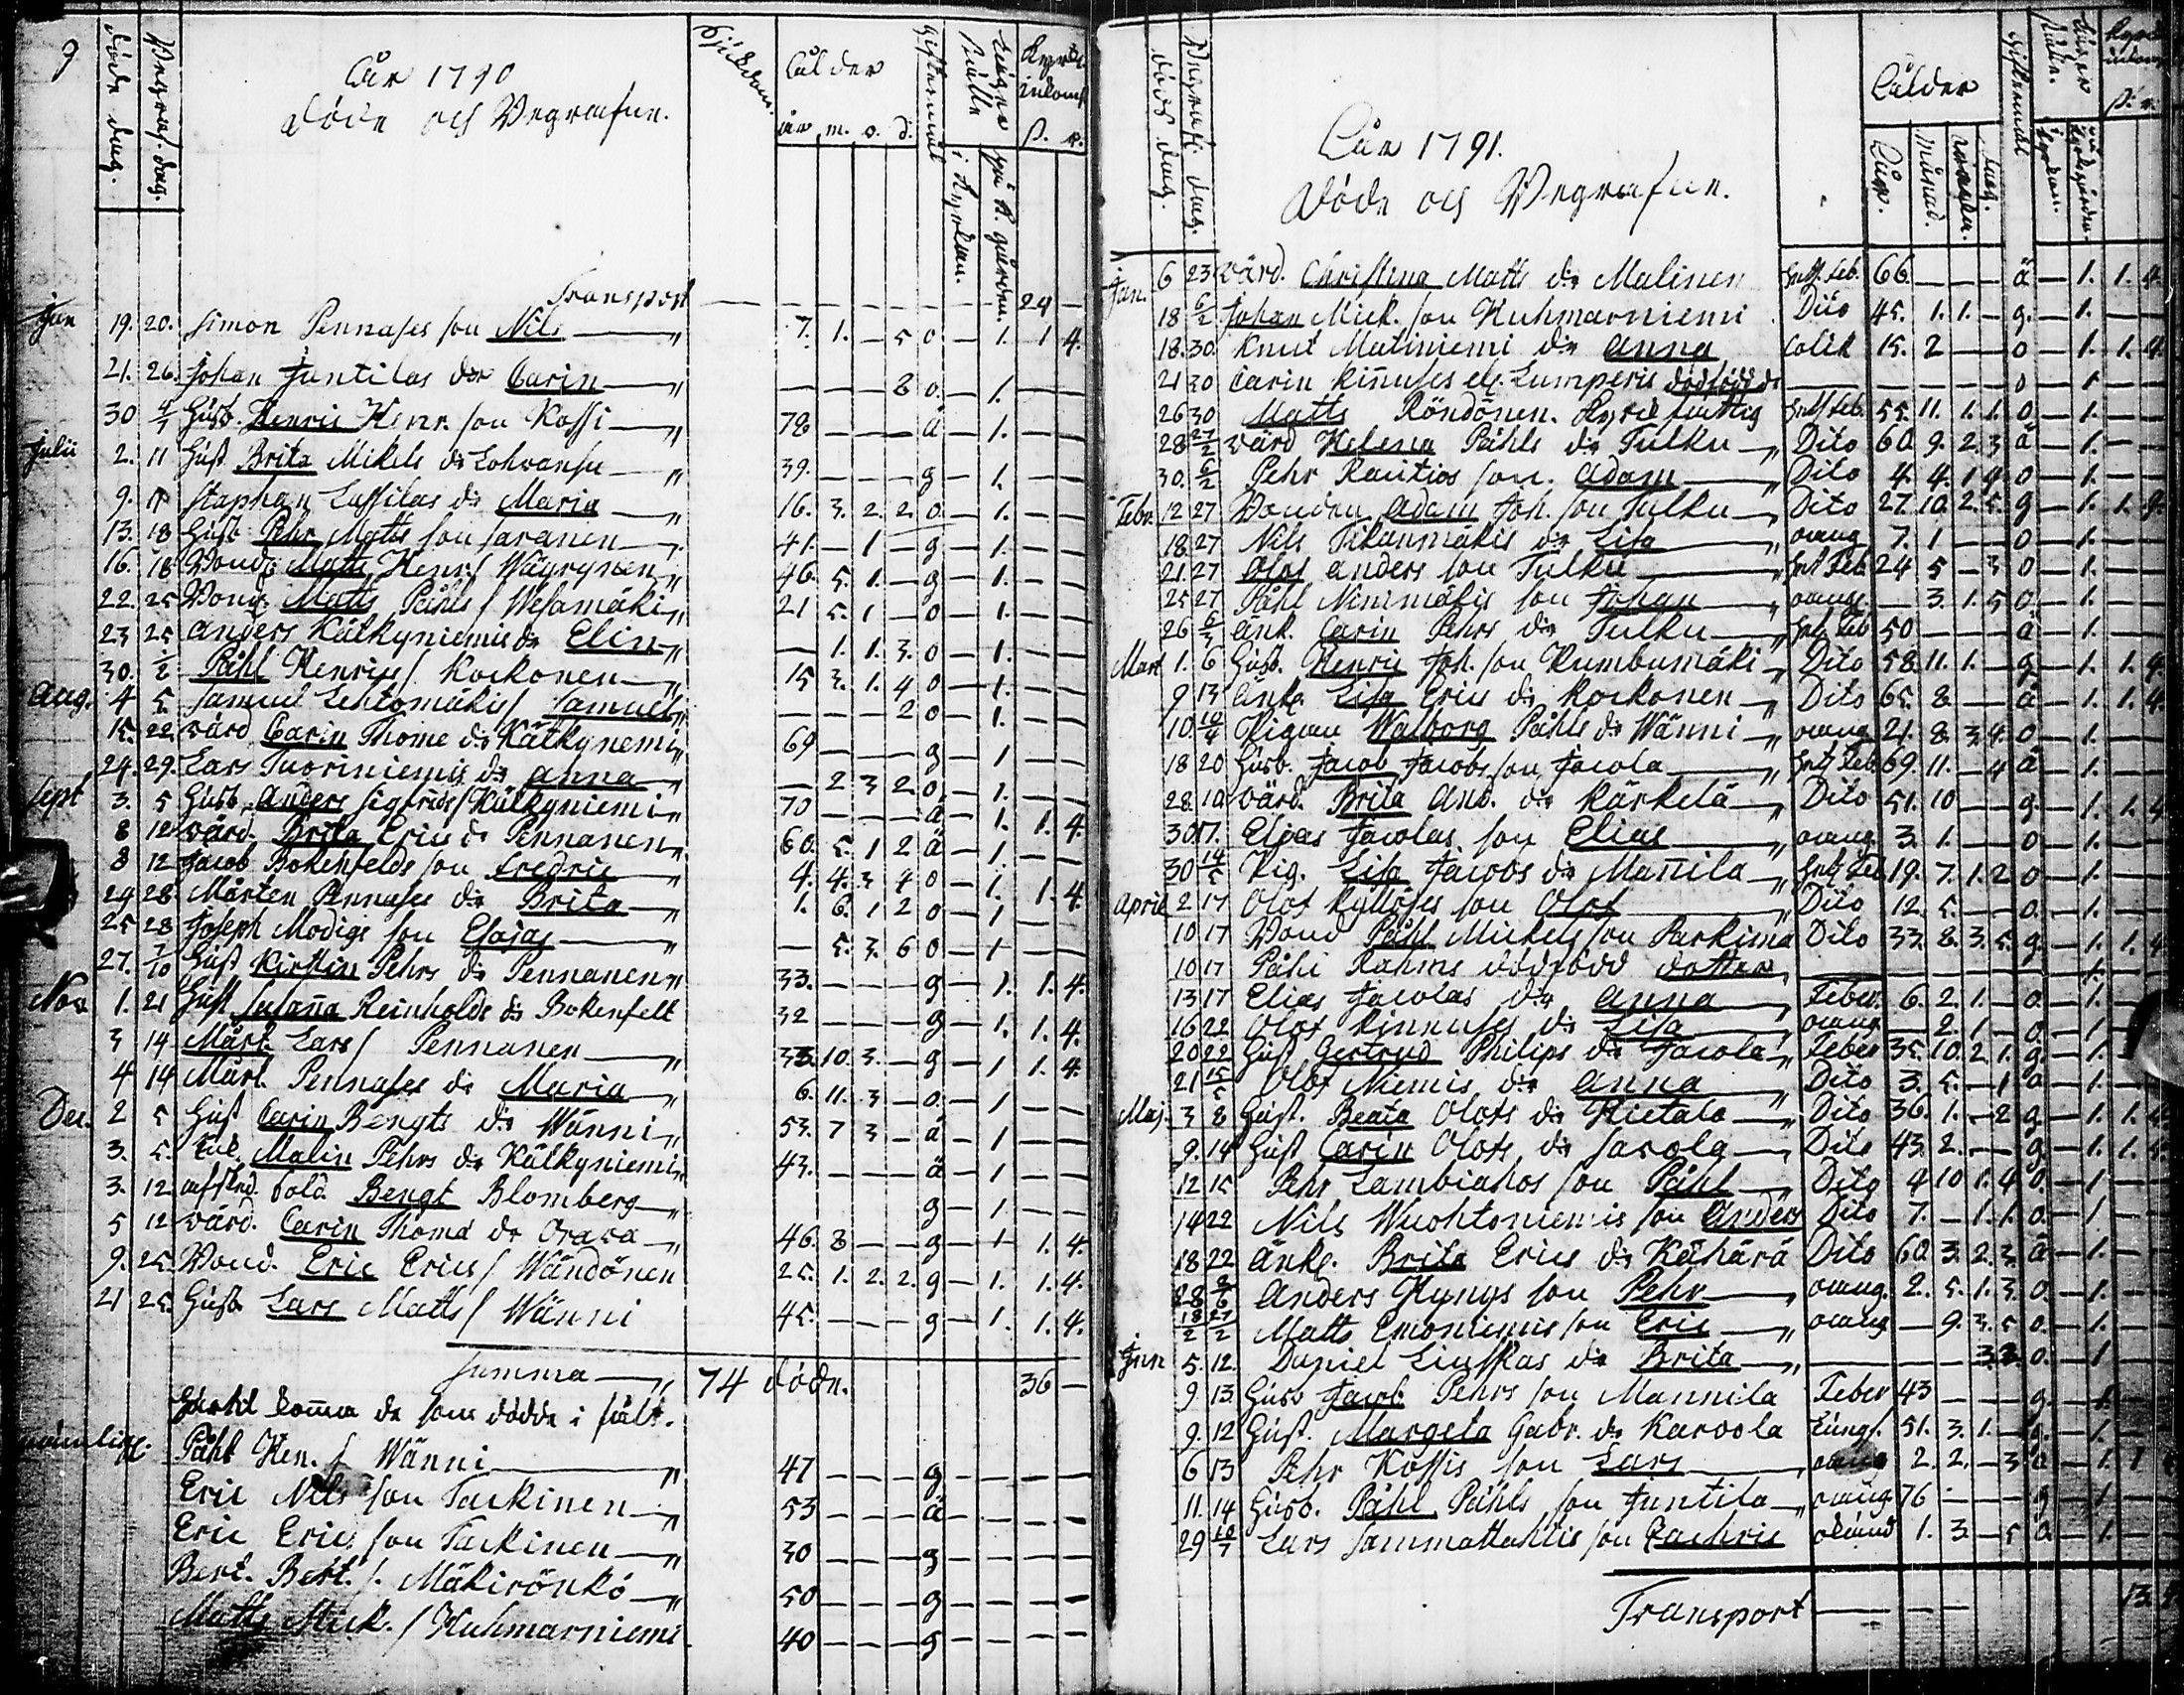 9
Döde dag.
Begraf. dag.
År 1790
Döde och Begrafne.
Sjukdom.
Ålder
år m. v. d.
Giftermål
Läger ställe
i Kyrkan.
på K. gården.
Kyrk. inkomst
ß. r.
Transport — 24 —
Jan 19. 20. Simon Pennases son Nils — 7. 1. — 5 o — 1. 1 4.
21. 26. Johan Juntilas dr Carin — — — — 8 o. — 1. — —
30 4/7 Husb. Henric Henr. son Kossi — 78 — — — ä — 1. — —
Julii 2. 11 Hust Brita Mikels dr Lohvansu — 39. — — — g — 1. — —
9. 11 Staphan Lassilas dr Maria — 16. 3. 2. 2. o — 1. — —
13. 18 Husb Pehr Matts son Saranen — 41. — 1 — g — 1. — —
16. 18 Bond. Matts Henr. s Wäyrynen 46. 5. 1. — g — 1. — —
22. 25 Bond. Matts Påhls s Wesamäki 21 5. 1 — o — 1. — —
23 25 Anders Kälkyniemis dr Elin — 1. 1. 3. o — 1. — —
30. 1/2 Påhl Henrics s. Kockonen — 15 3. 1. 4 o — 1. — —
Aug. 4 5 Samuel Lehtomäkis s Samuel — — — 2 o — 1. — —
15. 22. värd Carin Thome dr Kälkynemi 69 — — — g — 1 — —
24. 29. Lars Tuoriniemis dr Anna — — 2 3 2 o — 1. — —
Sept 3. 5 Husb. Anders Sigfrids s Kälkyniemi 70 — — — ä — 1. 1. 4.
8 12 värd. Brita Erics dr Pennanen 60. 5. 1 2 ä — 1. — —
8 12 Jacob Bokenfelds son Fredric 4. 4. 3 4 o — 1. 1. 4.
24 28. Mårten Pennases dr Brita — 1. 6. 1 2 o — 1 — —
25 28 Joseph Modigs son Esajas — — 5. 3. 6 o — 1 — —
27. 7/10 Hust Kirstin Pehrs dr Pennanen 33. — — — g — 1. 1. 4.
Nov 1. 21 Hust Susana Reinholds dr Bokenfelt 32 — — — g — 1. 1. 4.
3 14 Mårt. Lars s Pennanen — 33. 10. 3. — g — 1 1. 4.
4 14 Mårt. Pennases dr Maria — 6. 11. 3 — o. — 1 — —
Dec. 2 5 Hust Carin Bengts dr Wänni 53. 7 3 — ä — 1 — —
3. 5. Malin Pehrs dr Kälkyniemi 43. — — — ä — 1 — —
3. 12. afsked. sold. Bengt Blomberg — g — 1 — —
5 12 värd. Carin Thoma dr Orava — 46. 8 — — g — 1 1. 4.
9. 25. Bond. Eric Erics s Wändönen 25. 1. 2. 2. g — 1. 1. 4.
21 25. Husb Lars Matts s Wänni 45. — — — g — 1. 1. 4.
Summa — 74 döde. 36 —
komma de som dödde i fält.
nämlig.
Påhl Hen. s Wänni — 47 — — — g — — — —
Eric Nils son Tackinen — 53 — — — ä — — — —
Eric Erics son Tackinen — 30 — — — g — — — —
Bert. Bert. s. Mäkirönkö — 50 — — — g — — — —
Matts Mick. s Kuhmarniemi 40 — — — g — — — —
Döds dag.
Begrafn. dag.
År 1791.
Döde och Begrafne.
Ålder
Åhr.
Månad.
veckor.
dag.
Giftermål
i kyrkan.
på kyrkogården.
ß. r.
Jan. 6 23 värd. Christina Matts dr Malinen Hets. Feb. 66. — — — ä — 1. 1. 4.
18 6/2 Johan Mick. son Kuhmarniemi Dito 45. 1. 1. — g. — 1. — —
18. 30. Knut Matiniemi dr Anna Colik 15. 2 — — o — 1. 1. 4.
21 30 Carin Kinnuses el. Lumperis dödfödd dr — — — — o — 1 — —
26 30 Matts Röndönen. Kyrk fattig Hets Feb. 55. 11. 1. 1. o — 1. — —
28 27/2 värd Helena Påhls dr Tulku — Dito 60. 9. 2. 3 ä — 1. — —
30. 6/2 Pehr Rautios son Adam — Dito 4. 4. 1 4. o — 1. — —
Febr. 12 27 Bonden Adam Joh. son Tulku Dito 27. 10. 2. 5. g — 1. 1. 9.
18 27 Nils Tikanmäkis dr Lisa — 7. 1 — — o — 1. — —
21. 27 Olof Anders son Tulku — Het Feb 24 5 — 3 o — 1. — —
25 27 Påhl Nimmäkis son Johan — — 3. 1. 5 o. — 1. — —
26 6/3 Änk. Carin Pehrs dr Tulku — Het. Feb 50 — — — ä — 1. — —
Mart 1. 6 Husb. Henric Joh. son Kumbumäki Dito 58. 11. 1. — g. — 1. 1. 4.
9 13 Änk. Lisa Erics dr Kockonen — Dito 65. 8 — — ä — 1. 1. 4.
10. 10/4 Pigan Walborg Påhls dr Wänni — 21. 8. 3. 4. o — 1. — —
18 20 Husb. Jacob Jacobs son Jacola — Hets Feb. 69. 11. — 4 ä — 1. — —
28. 10 värd. Brita And. dr Kärkelä — Dito 51. 10 — — g. — 1. 1. 4
30 17. Elias Jacolas son Elias — 3. 1. — — o — 1. — —
30 14/5 Pig. Lisa Jacobs dr Manila — Hets Feb. 19. 7. 1. 2 o — 1. — —
April 2 17 Olof Kyllöses son Olof — Dito 12. 5. — — o. — 1. — —
10 17 Bond Påhl Mickels son Parkima Dito 33. 8. 3. 5. g. — 1. 1.
10 17 Påhl Rahms dödfödd dotter — 1.
13 17 Elias Jacolas dr Anna — Feber. 6. 2. 1. — o. — 1. —
16 22 Olof Kinnuses dr Lisa — — 2. 1 — o. — 1. —
20 22 Hust Gertrud Philips dr Jacola Feber 35. 10. 2. 1. g. — 1. —
21 15/5 Olof Niemis dr Anna — Dito 3. 5. — 1 o — 1. —
Maj. 3 8 Hust. Beata Olofs dr Kietala — Dito 36. 1. — 2 g. — 1. 1. 4
9. 14 Hust Carin Olofs dr Jacola — Dito 43. 2. — — g — 1. 1. 5.
12 15 Pehr Lambiahos son Påhl — Dito 4 10 1. 4 o. — 1 — —
14 22 Nils Wuohtoniemis son Anders Dito 7. — 1. 1. o. — 1 — —
18 22 Änk. Brita Erics dr Kähärä Dito 60. 3. 2. 3. ä — 1. — —
28 2/6 Anders Hyngs son Pehr — 2. 5. 1. 3. o. — 1. — —
18/2 27/2 Matts Emoniemis son Eric — — 9. 3. 5 o. — 1. — —
Jun 5. 12. Daniel Liuskas dr Brita — — — 3. 3. o. — 1
9 13. Husb Jacob Pehrs son Mannila Feber 43 — — — g. — 1. — —
9. 12 Hust. Margeta Gabr. dr Karvola Lungs. 51. 3. 1. — — 1. —
6 13 Pehr Kossis son Lars — 2. 2. — 3 o — 1. 1
11. 14 Husb. Påhl Påhls son Juntila — 76 — — — g — 1 —
29 10/7 Lars Sammattahtis son Zachris okänd 1. 3. — 5 o. — 1. —
Transport — — — 13.